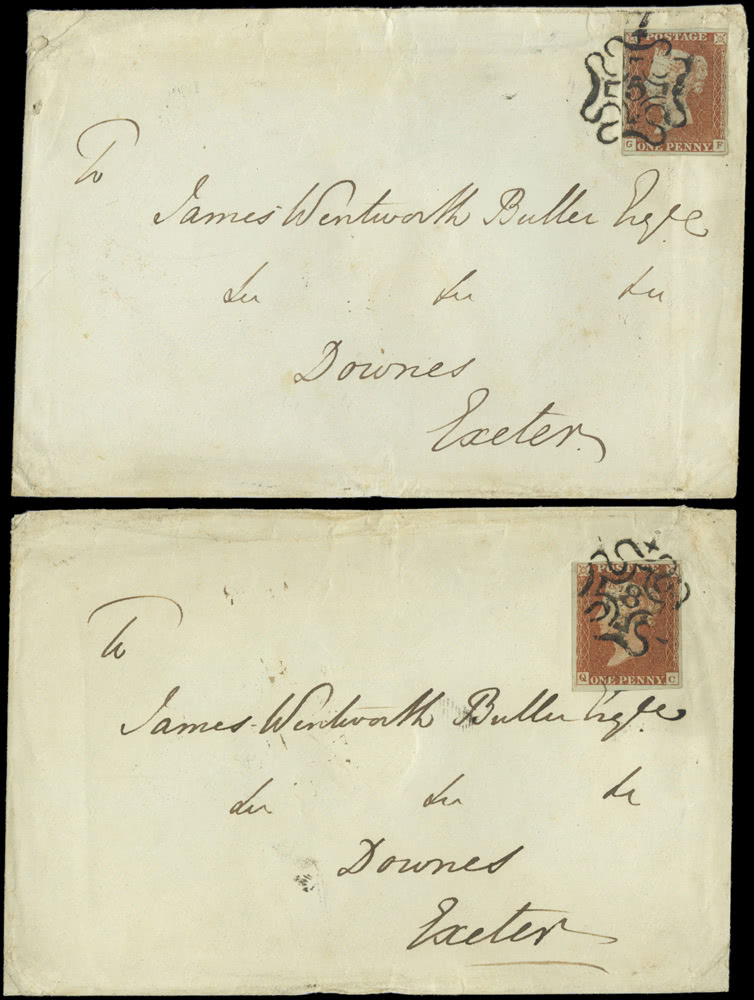 POSTAGE
5
G F
ONE PENNY
To
James Wentworth Buller Esqre
&c &c &c
Downes
Exeter
POSTAGE
8
Q C
ONE PENNY
To
James Wentworth Buller Esqre
&c &c &c
Downes
Exeter